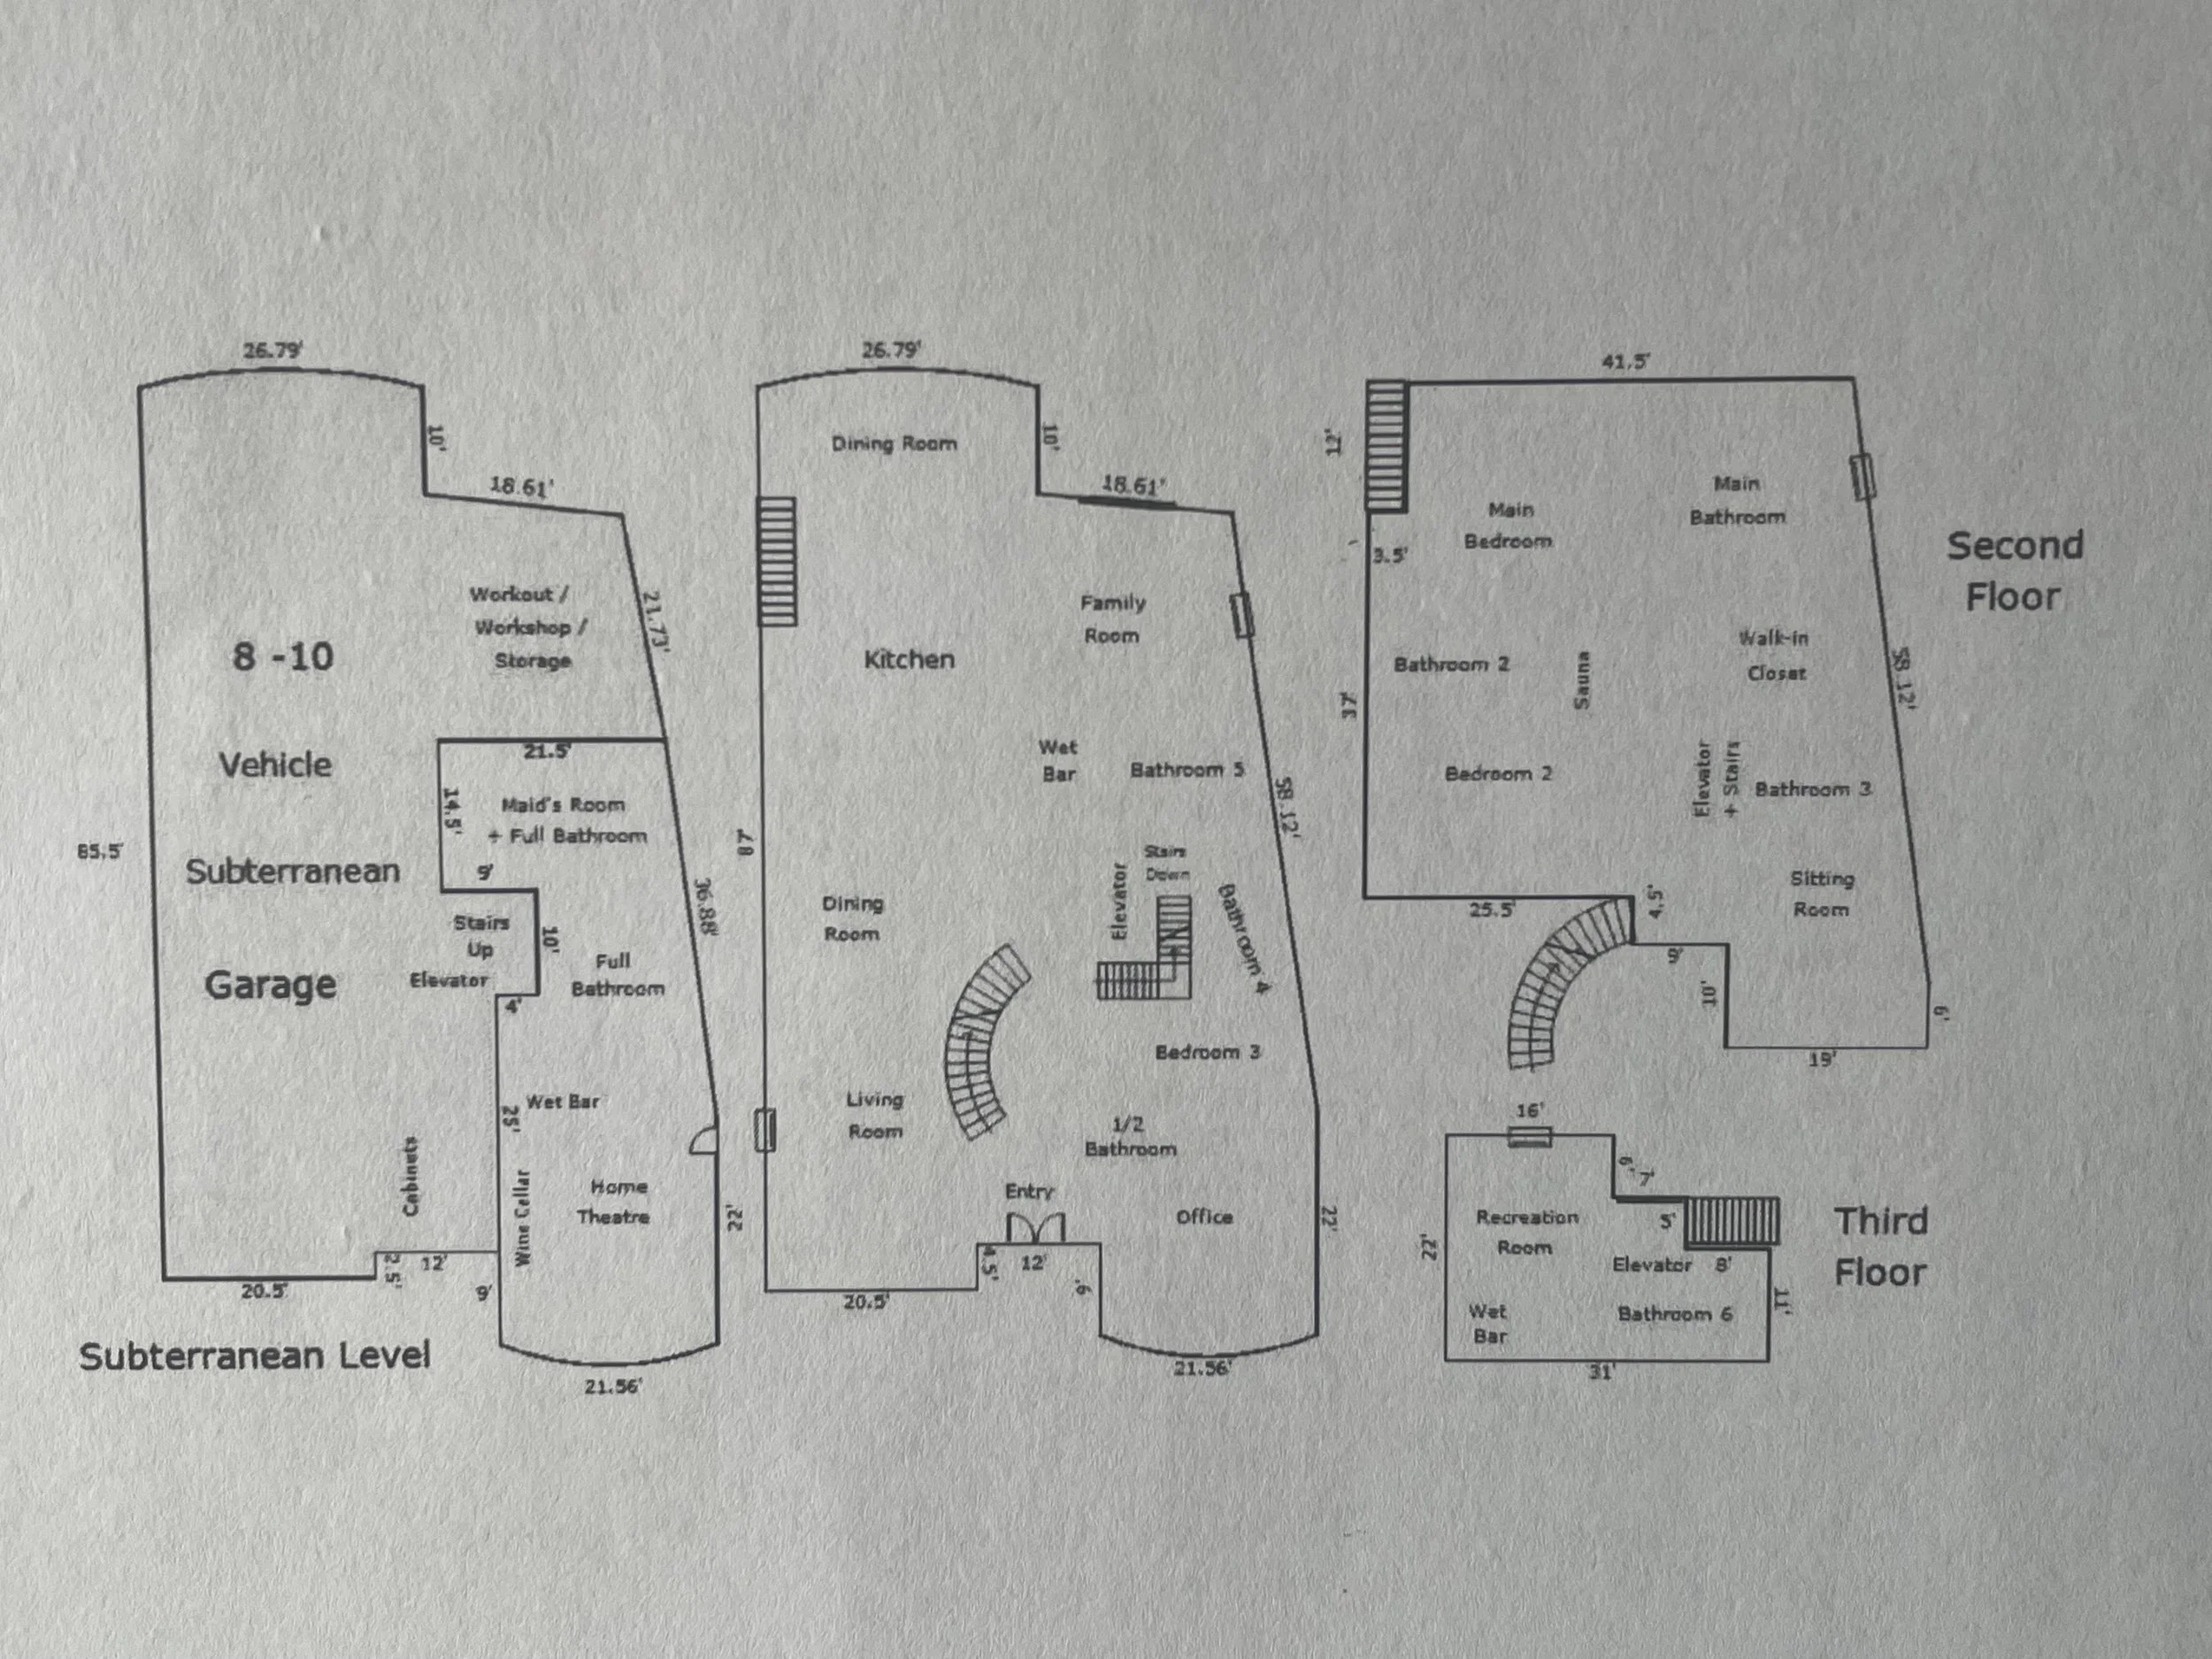 26.79'
10'
18.61'
Workout /
Workshop /
Storage
21.73'
8 -10
Vehicle
Subterranean
Garage
85.5'
21.5'
14.5'
Maid's Room
+ Full Bathroom
9'
36.88'
Stairs
Up
10'
Elevator
4'
Full
Bathroom
25'
Wet Bar
Cabinets
Wine Cellar
Home
Theatre
22'
2.5'
12'
20.5'
9'
21.56'
Subterranean Level
26.79'
Dining Room
10'
18.61'
Family
Room
Kitchen
Wet
Bar
Bathroom 5
58.12'
87'
Stairs
Down
Elevator
Bathroom 4
Dining
Room
Bedroom 3
Living
Room
1/2
Bathroom
Entry
Office
22'
4.5'
12'
9'
20.5'
21.56'
41.5'
12'
3.5'
Main
Bedroom
Main
Bathroom
Second
Floor
Bathroom 2
Sauna
Walk-in
Closet
58.12'
37'
Bedroom 2
Elevator
+ Stairs
Bathroom 3
Sitting
Room
25.5'
4.5'
9'
10'
6'
19'
16'
6'
7'
Recreation
Room
5'
22'
Elevator
8'
Third
Floor
Wet
Bar
Bathroom 6
11'
31'